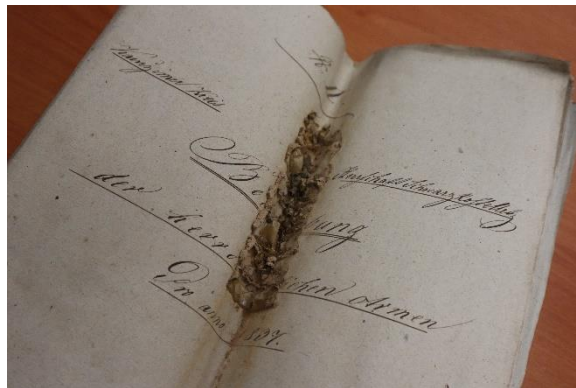 Kaurzimer Kreis
Herrschaft Schwarzkosteletz
Be ung
der herr chen Armen
Pro anno